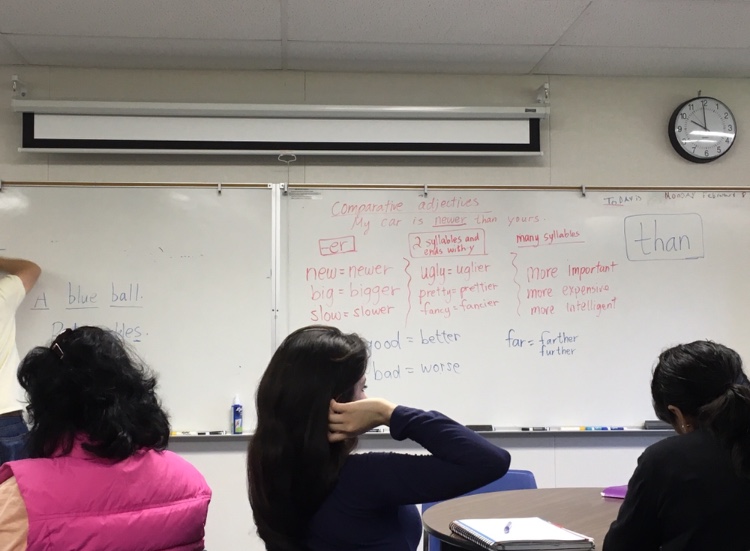 Today is Monday February
Comparative adjectives
My car is newer than yours.
than
-er
2 syllables and
ends with y
many syllables
new = newer
big = bigger
slow = slower
ugly = uglier
pretty = prettier
fancy = fancier
more important
more expensive
more intelligent
good = better
bad = worse
far = farther
further
A blue ball.
12